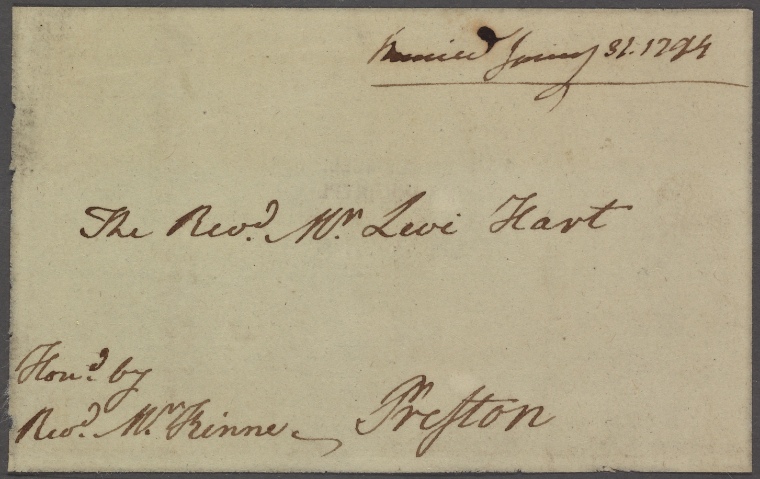 Received Jany 31. 1794
The Revd. Mr. Levi Hart
Hond. by
Revd. Mr. Kinne
Preston